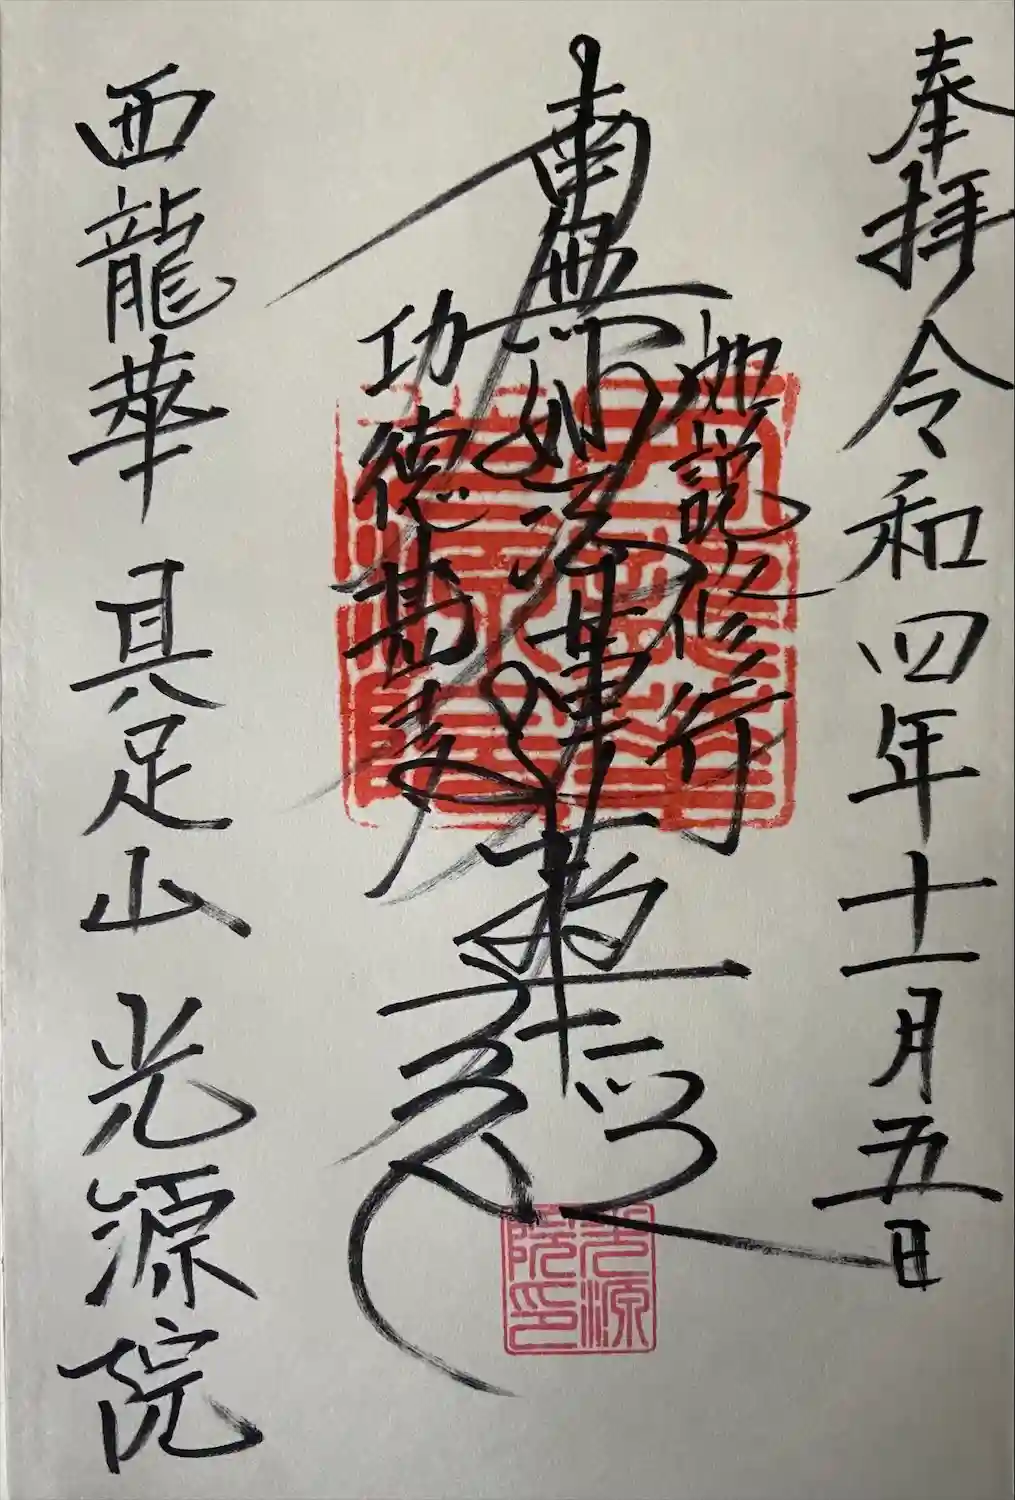 奉拝 令和四年十一月五日
如説修行
南無妙法蓮華経
功徳甚
西龍華 具足山 光源院
光源
院印